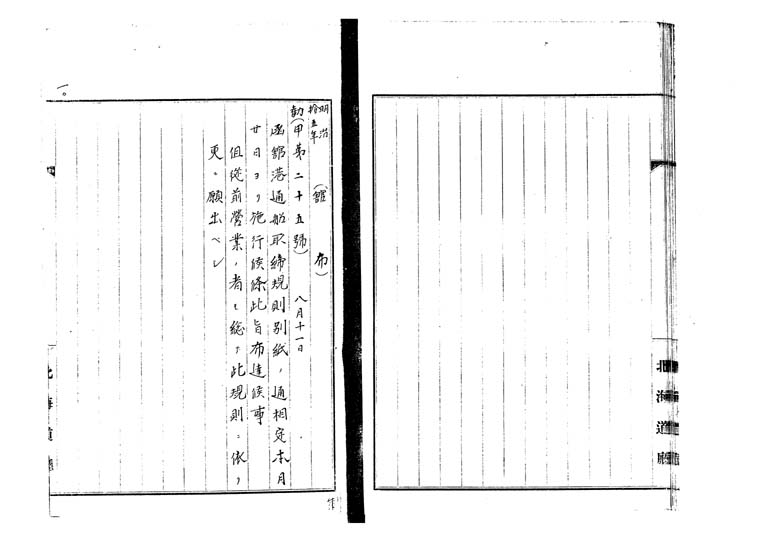 北海道廳
明治
拾五年
(舘 布)
(甲第二十五號) 八月十一日
函舘港通船取締規則別紙ノ通相定本月
廿日ヨリ施行候條此旨布達候事
但從前營業ノ者モ總テ此規則ニ依リ
更ニ願出ヘシ
北海道
一。